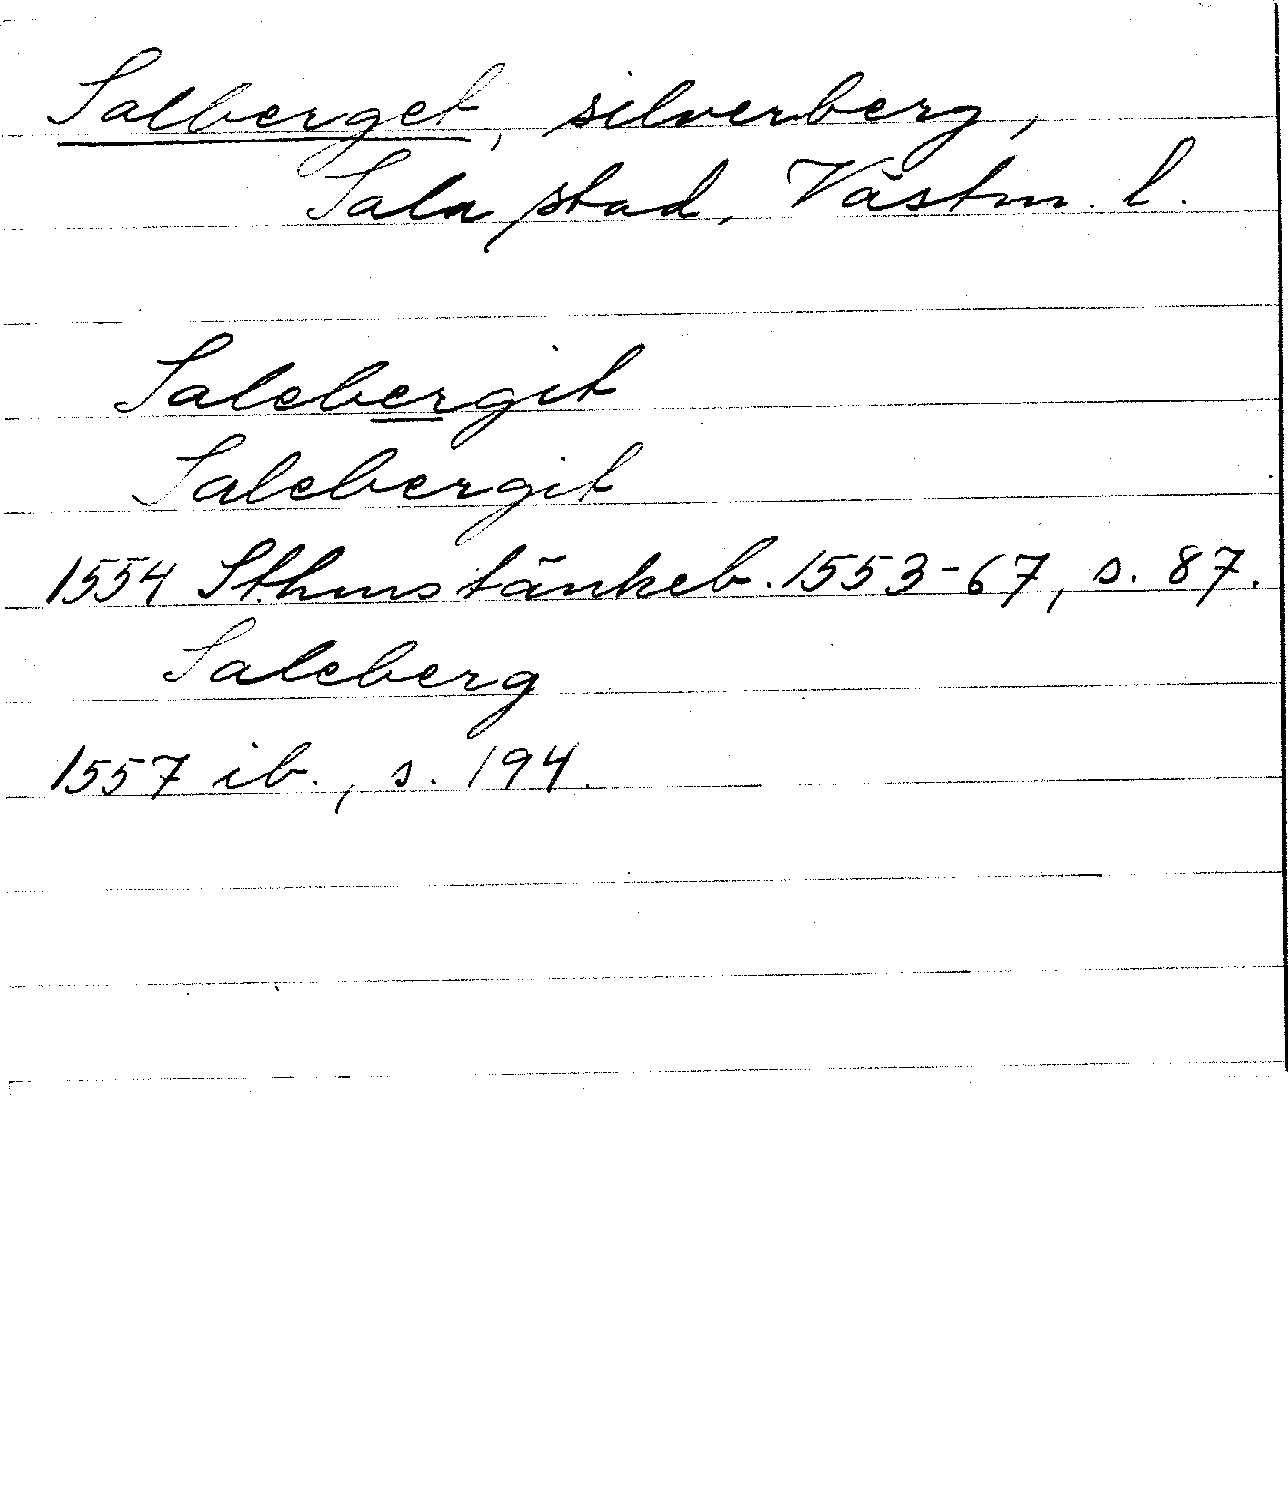 Salberget, silverberg,
Sala stad, Västm. l.
Salebergit
Salebergit
1554 Sthms tänkeb. 1553-67, s. 87.
Saleberg
1557 ib., s. 194.